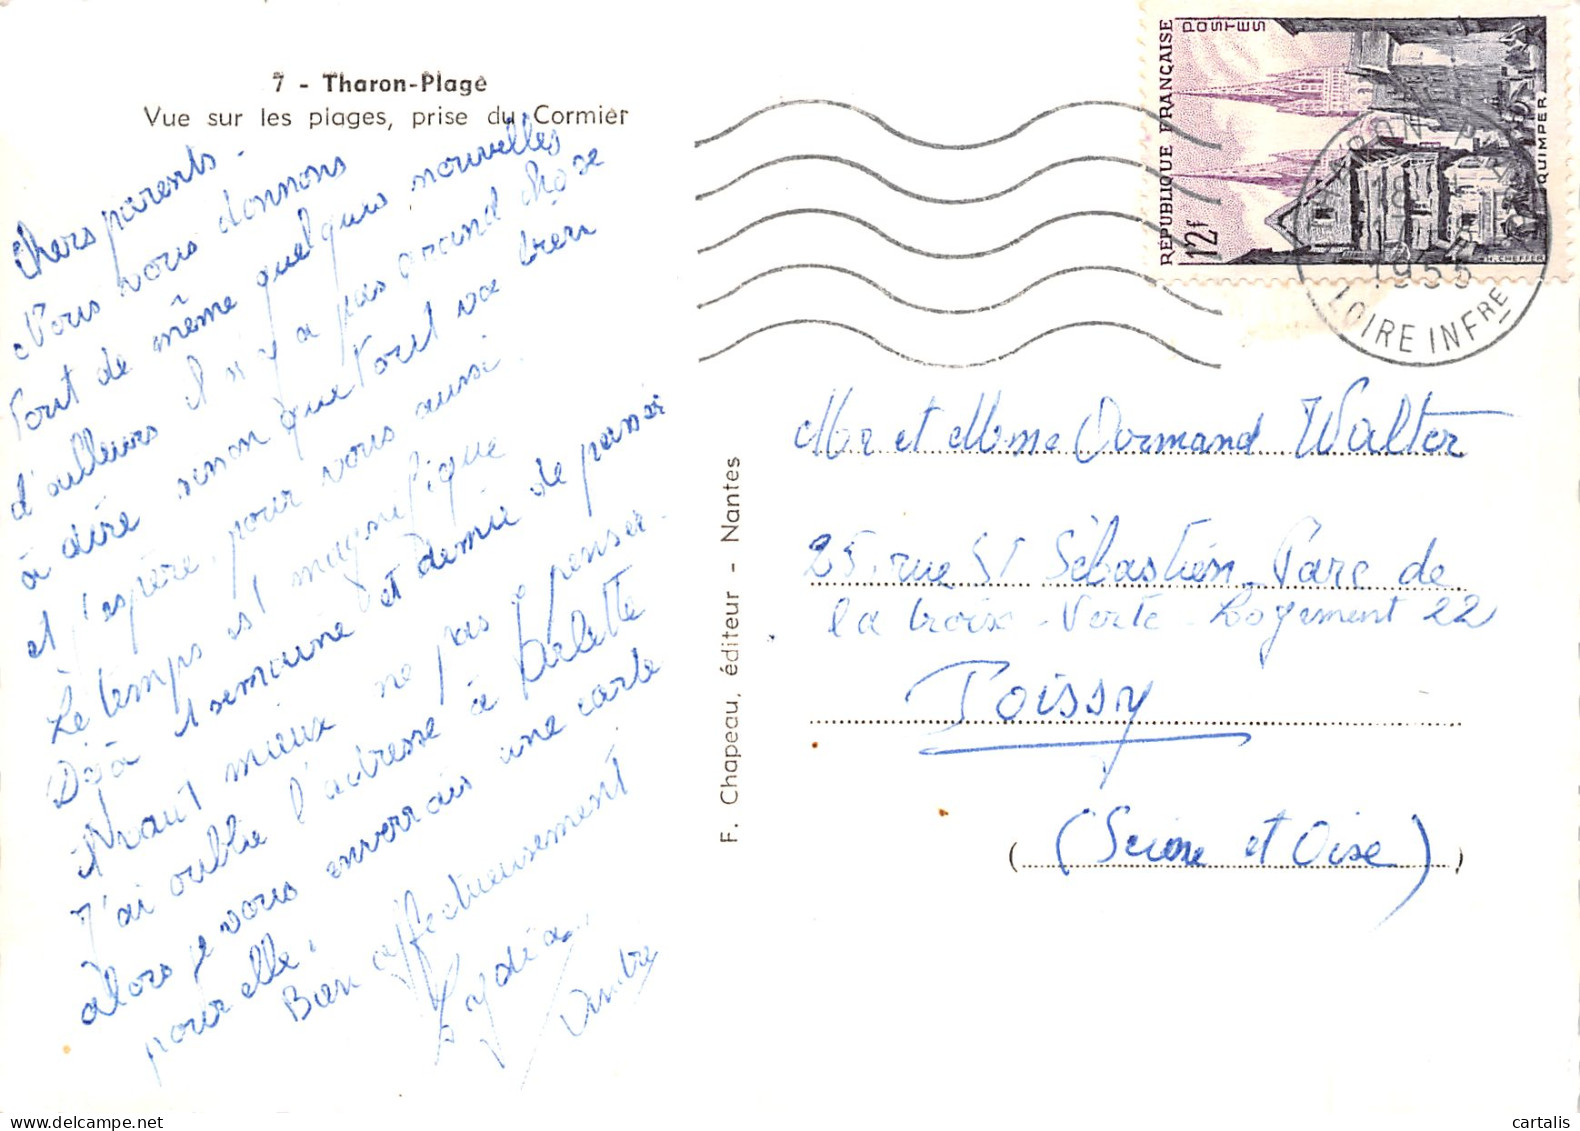 7 - Tharon-Plage
Vue sur les plages, prise du Cormier
Chers parents.
Nous vous donnons
Tout de même quelques nouvelles
d'ailleurs il n'y a pas grand chose
à dire sinon que tout va bien
et j'espère, pour vous aussi.
Le temps est magnifique
Déjà 1 semaine et demie de passé
Il vaut mieux ne pas y penser.
J'ai oublié l'adresse à Arlette
alors je vous enverrais une carte
pour elle.
Bien affectueusement
Lydia
André
F. Chapeau, éditeur - Nantes
RÉPUBLIQUE FRANÇAISE
POSTES
12F
QUIMPER
H. CHEFFER
THARON PLAGE
18
1955
LOIRE INFRE
Mr et Mme Ormand Walter
25, rue St Sébastien - Parc de
la Croix - Verte - Logement 22
Poissy
(Seine et Oise)
cartalis